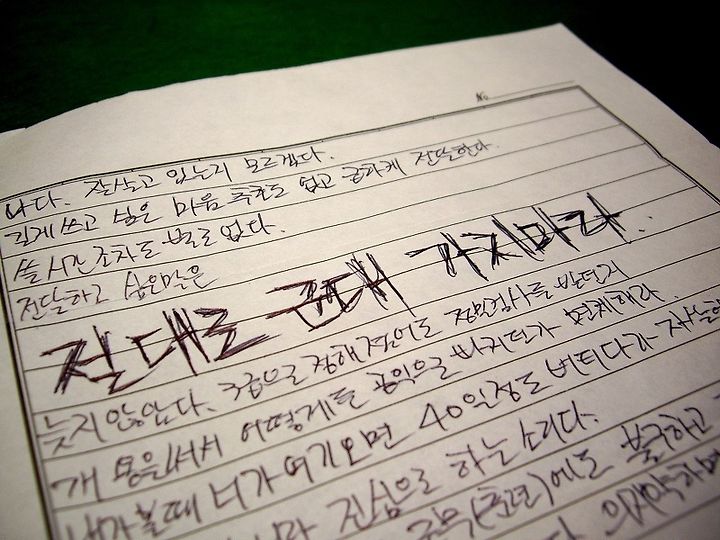 No.
나다. 잘살고 있는지 모르겠다.
길게 쓰고 싶은 마음 추호도 없고 급하게 전달한다
쓸 시간조차도 별로 없다.
전달하고 싶은말은
절대로 군대 가지마라..
늦지 않았다. 3급으로 정해졌어도 재신검사를 받던지
개 몽음써서 어떻게든 공익으로 빠지던가 면제해라.
내가 볼때 너가 여기오면 40일정도 버티다가 자살
진심으로 하는 소리다.
(훈련)에도 불구하고